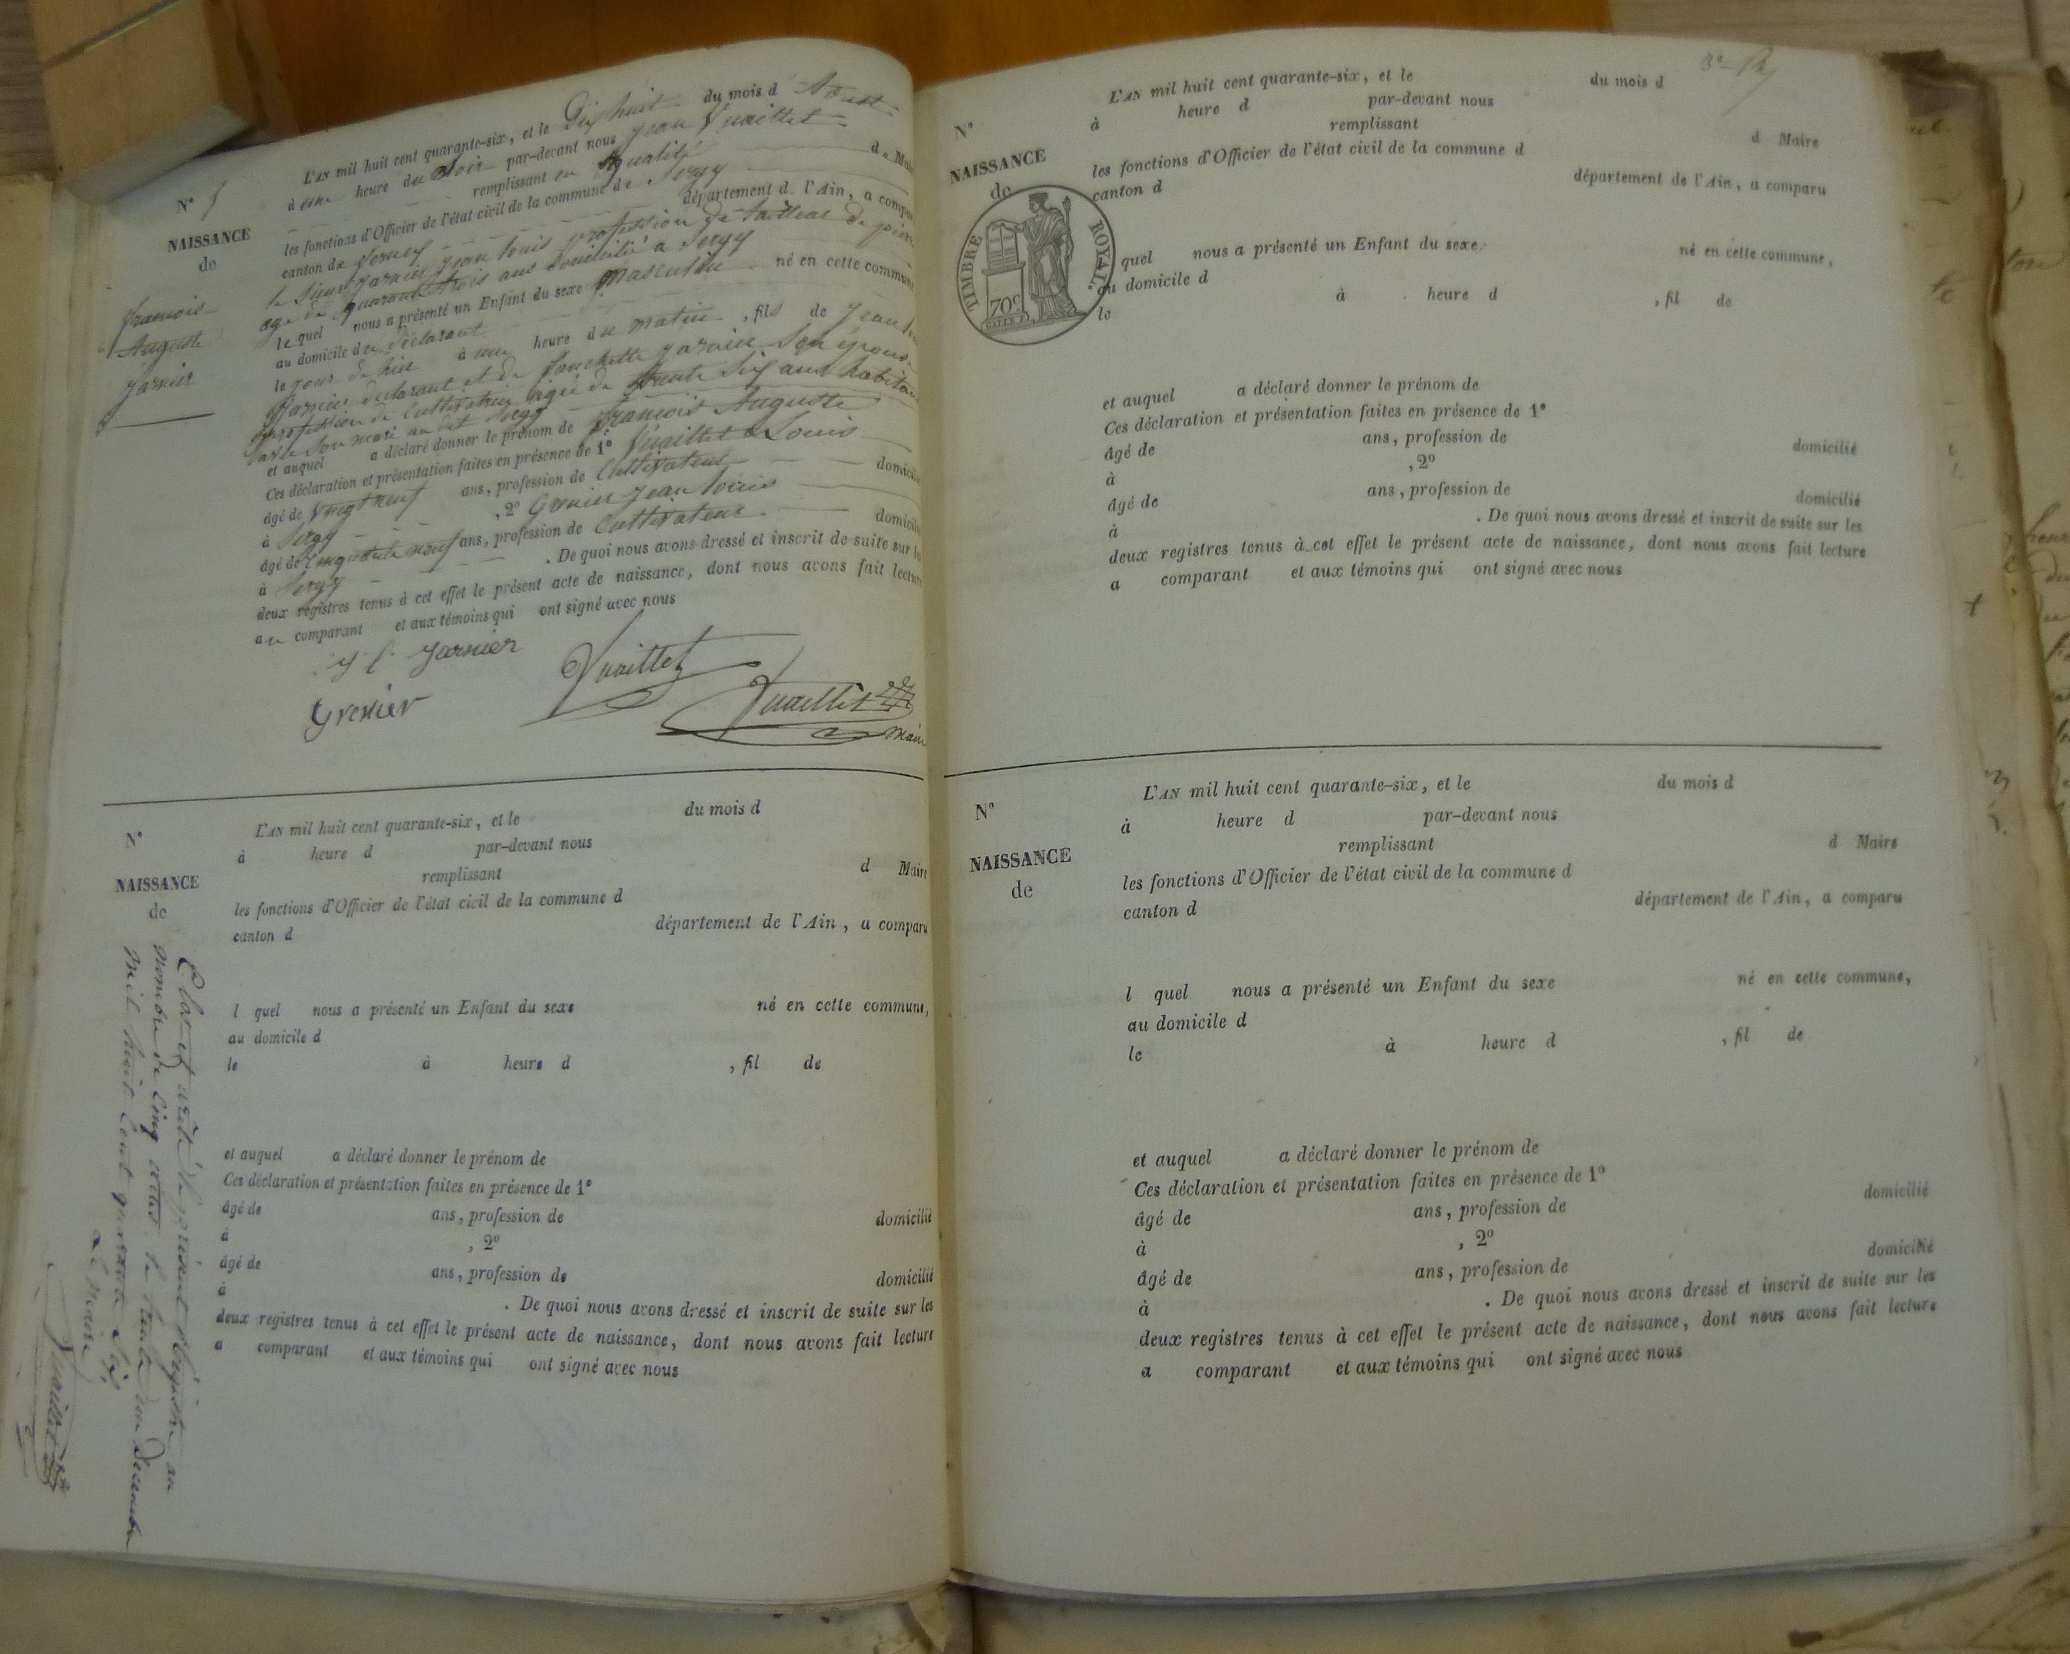 N° 5
NAISSANCE
de
François
Auguste
Jarnier
L'AN mil huit cent quarante-six, et le Dix huit du mois d'Aoust
à une heure du soir par-devant nous Jean Vuaillet
remplissant en qualité de Maire
les fonctions d'Officier de l'état civil de la commune de Sergy
canton de département de l'Ain, a comparu
le Sieur Jarnier Jean Louis profession de tailleur de pierre
age de quarante trois ans domicilié a Sergy
le quel nous a présenté un Enfant du sexe Masculin né en cette commune
au domicile du déclarant
le jour de hier à une heure du matin, fils de Jean
Jarnier déclarant et de Fanchette Jarnier Son épouse
profession de Cultivatrice agée de trente Six ans habitant
avec Son mari au dit Sergy
et auquel a déclaré donner le prénom de François Auguste
Ces déclaration et présentation faites en présence de 1° Vuaillet Louis
âgé de Vingt neuf ans, profession de Cultivateur domicilié
à Sergy, 2° Grenier Jean Louis
âgé de Cinquante neuf ans, profession de Cultivateur domicilié
à Sergy. De quoi nous avons dressé et inscrit de suite sur les
deux registres tenus à cet effet le présent acte de naissance, dont nous avons fait lecture
au comparant et aux témoins qui ont signé avec nous
J L Jarnier
Vuaillet
Grenier
Vuaillet
Maire
NAISSANCE
de
L'AN mil huit cent quarante-six, et le du mois d
à heure d par-devant nous
remplissant d Maire
les fonctions d'Officier de l'état civil de la commune d
canton d département de l'Ain, a comparu
l quel nous a présenté un Enfant du sexe né en cette commune,
au domicile d
le à heure d , fil de
et auquel a déclaré donner le prénom de
Ces déclaration et présentation faites en présence de 1°
âgé de ans, profession de domicilié
à , 2°
âgé de ans, profession de domicilié
à . De quoi nous avons dressé et inscrit de suite sur les
deux registres tenus à cet effet le présent acte de naissance, dont nous avons fait lecture
a comparant et aux témoins qui ont signé avec nous
Clos et arrêté le présent régistre au
nombre de Cinq actes le trente un Décembre
mil huit Cent quarante Six
Le Maire
Vuaillet
N°
NAISSANCE
de
TIMBRE ROYAL
70c
L'AN mil huit cent quarante-six, et le du mois d
à heure d par-devant nous
remplissant d Maire
les fonctions d'Officier de l'état civil de la commune d
canton d département de l'Ain, a comparu
quel nous a présenté un Enfant du sexe né en cette commune,
au domicile d
le à heure d , fil de
et auquel a déclaré donner le prénom de
Ces déclaration et présentation faites en présence de 1°
âgé de ans, profession de domicilié
à , 2°
âgé de ans, profession de domicilié
à . De quoi nous avons dressé et inscrit de suite sur les
deux registres tenus à cet effet le présent acte de naissance, dont nous avons fait lecture
a comparant et aux témoins qui ont signé avec nous
N°
NAISSANCE
de
L'AN mil huit cent quarante-six, et le du mois d
à heure d par-devant nous
remplissant d Maire
les fonctions d'Officier de l'état civil de la commune d
canton d département de l'Ain, a comparu
l quel nous a présenté un Enfant du sexe né en cette commune,
au domicile d
le à heure d , fil de
et auquel a déclaré donner le prénom de
Ces déclaration et présentation faites en présence de 1°
âgé de ans, profession de domicilié
à , 2°
âgé de ans, profession de domicilié
à . De quoi nous avons dressé et inscrit de suite sur les
deux registres tenus à cet effet le présent acte de naissance, dont nous avons fait lecture
a comparant et aux témoins qui ont signé avec nous